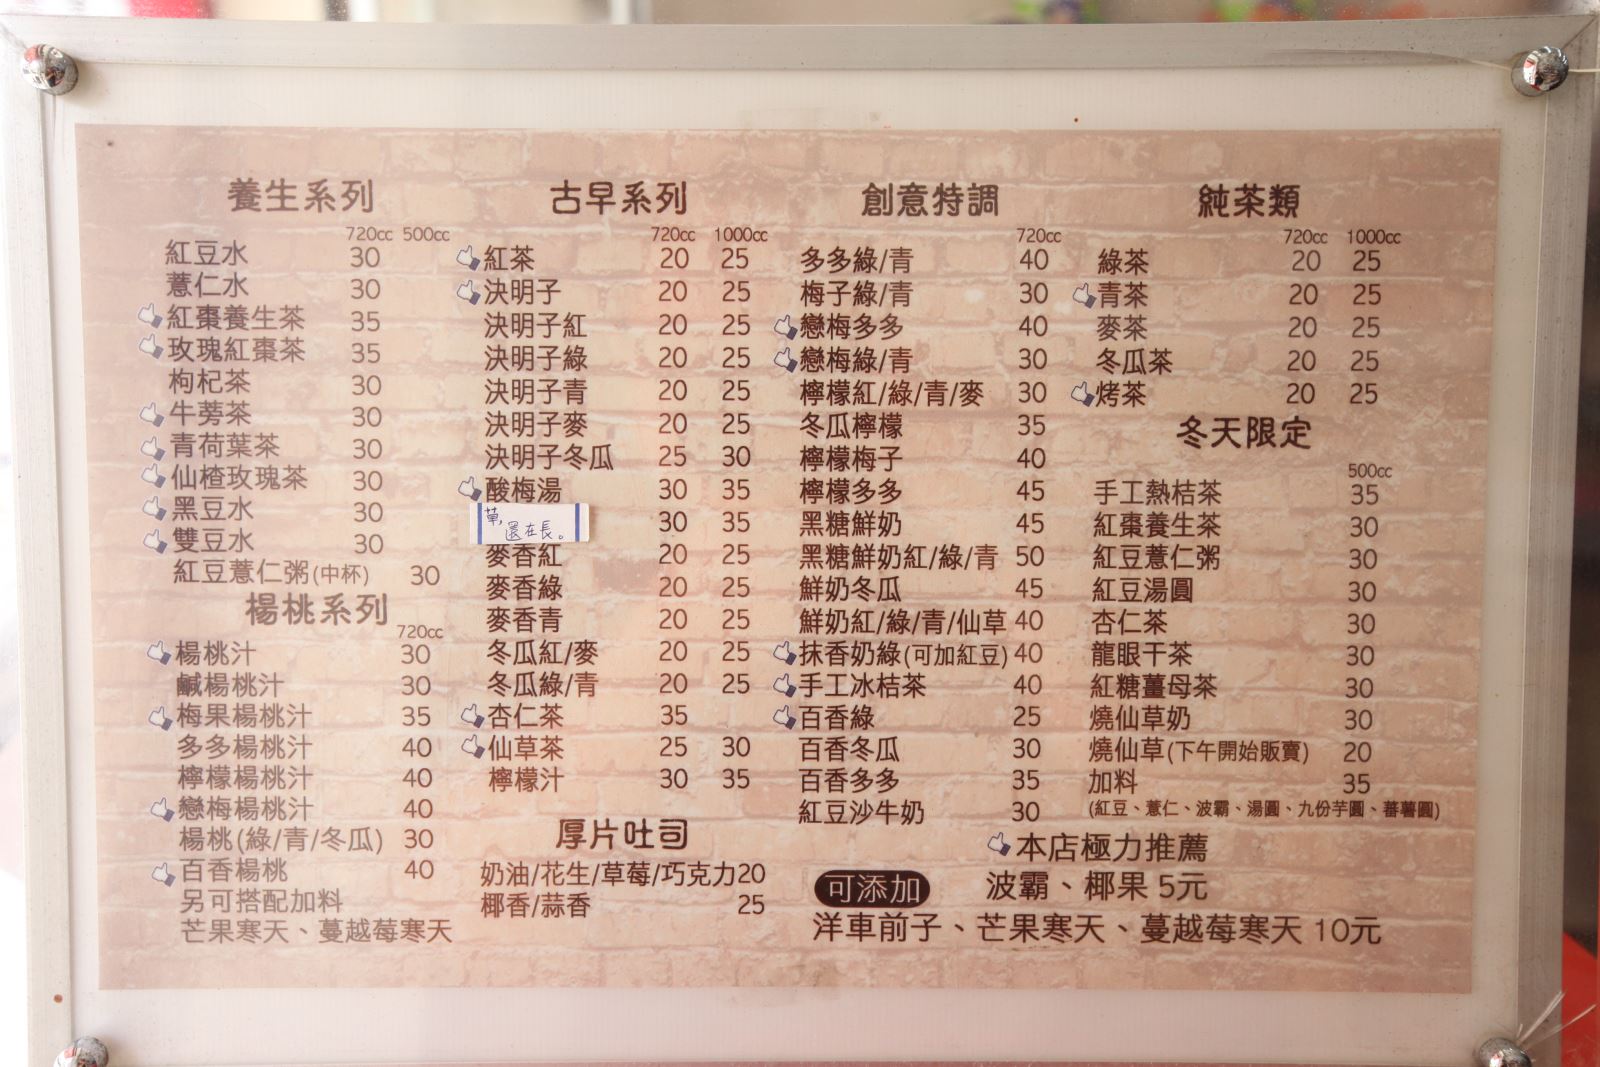 養生系列
720cc 500cc
紅豆水 30
薏仁水 30
紅棗養生茶 35
玫瑰紅棗茶 35
枸杞茶 30
牛蒡茶 30
青荷葉茶 30
仙楂玫瑰茶 30
黑豆水 30
雙豆水 30
紅豆薏仁粥(中杯) 30
楊桃系列
720cc
楊桃汁 30
鹹楊桃汁 30
梅果楊桃汁 35
多多楊桃汁 40
檸檬楊桃汁 40
戀梅楊桃汁 40
楊桃(綠/青/冬瓜) 30
百香楊桃 40
另可搭配加料
芒果寒天、蔓越莓寒天
古早系列
720cc 1000cc
紅茶 20 25
決明子 20 25
決明子紅 20 25
決明子綠 20 25
決明子青 20 25
決明子麥 20 25
決明子冬瓜 25 30
酸梅湯 30 35
草,還在長。 30 35
麥香紅 20 25
麥香綠 20 25
麥香青 20 25
冬瓜紅/麥 20 25
冬瓜綠/青 20 25
杏仁茶 35
仙草茶 25 30
檸檬汁 30 35
厚片吐司
奶油/花生/草莓/巧克力20
椰香/蒜香 25
創意特調
720cc
多多綠/青 40
梅子綠/青 30
戀梅多多 40
戀梅綠/青 30
檸檬紅/綠/青/麥 30
冬瓜檸檬 35
檸檬梅子 40
檸檬多多 45
黑糖鮮奶 45
黑糖鮮奶紅/綠/青 50
鮮奶冬瓜 45
鮮奶紅/綠/青/仙草 40
抹香奶綠(可加紅豆) 40
手工冰桔茶 40
百香綠 25
百香冬瓜 30
百香多多 35
紅豆沙牛奶 30
純茶類
720cc 1000cc
綠茶 20 25
青茶 20 25
麥茶 20 25
冬瓜茶 20 25
烤茶 20 25
冬天限定
500cc
手工熱桔茶 35
紅棗養生茶 30
紅豆薏仁粥 30
紅豆湯圓 30
杏仁茶 30
龍眼干茶 30
紅糖薑母茶 30
燒仙草奶 30
燒仙草(下午開始販賣) 20
加料 35
(紅豆、薏仁、波霸、湯圓、九份芋圓、蕃薯圓)
本店極力推薦
可添加 波霸、椰果 5元
洋車前子、芒果寒天、蔓越莓寒天 10元